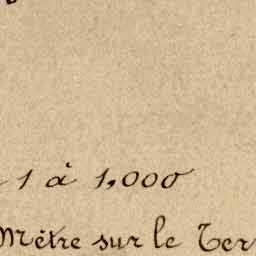 1 à 1,000
Mètre sur le Ter